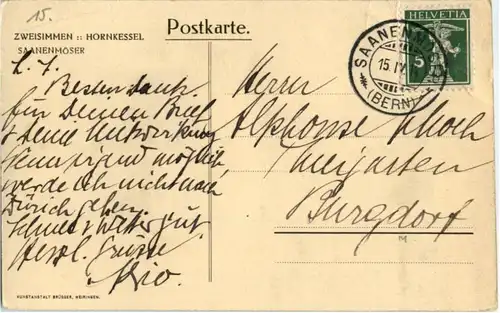 15.
Postkarte.
ZWEISIMMEN :: HORNKESSEL
SAANENMÖSER
HELVETIA
5
SAANENMÖSER
15. IV
(BERN)
L. F.
Besten Dank
für Deinen Brief
& Deine Mitwirkung
Wenn irgend möglich
werde ich nicht nach
Zürich gehen.
Schnee & Wetter gut.
Herzl. Grüsse
Herrn
Alphonse Schoch
Burgdorf
M
KUNSTANSTALT BRÜGGER, MEIRINGEN.